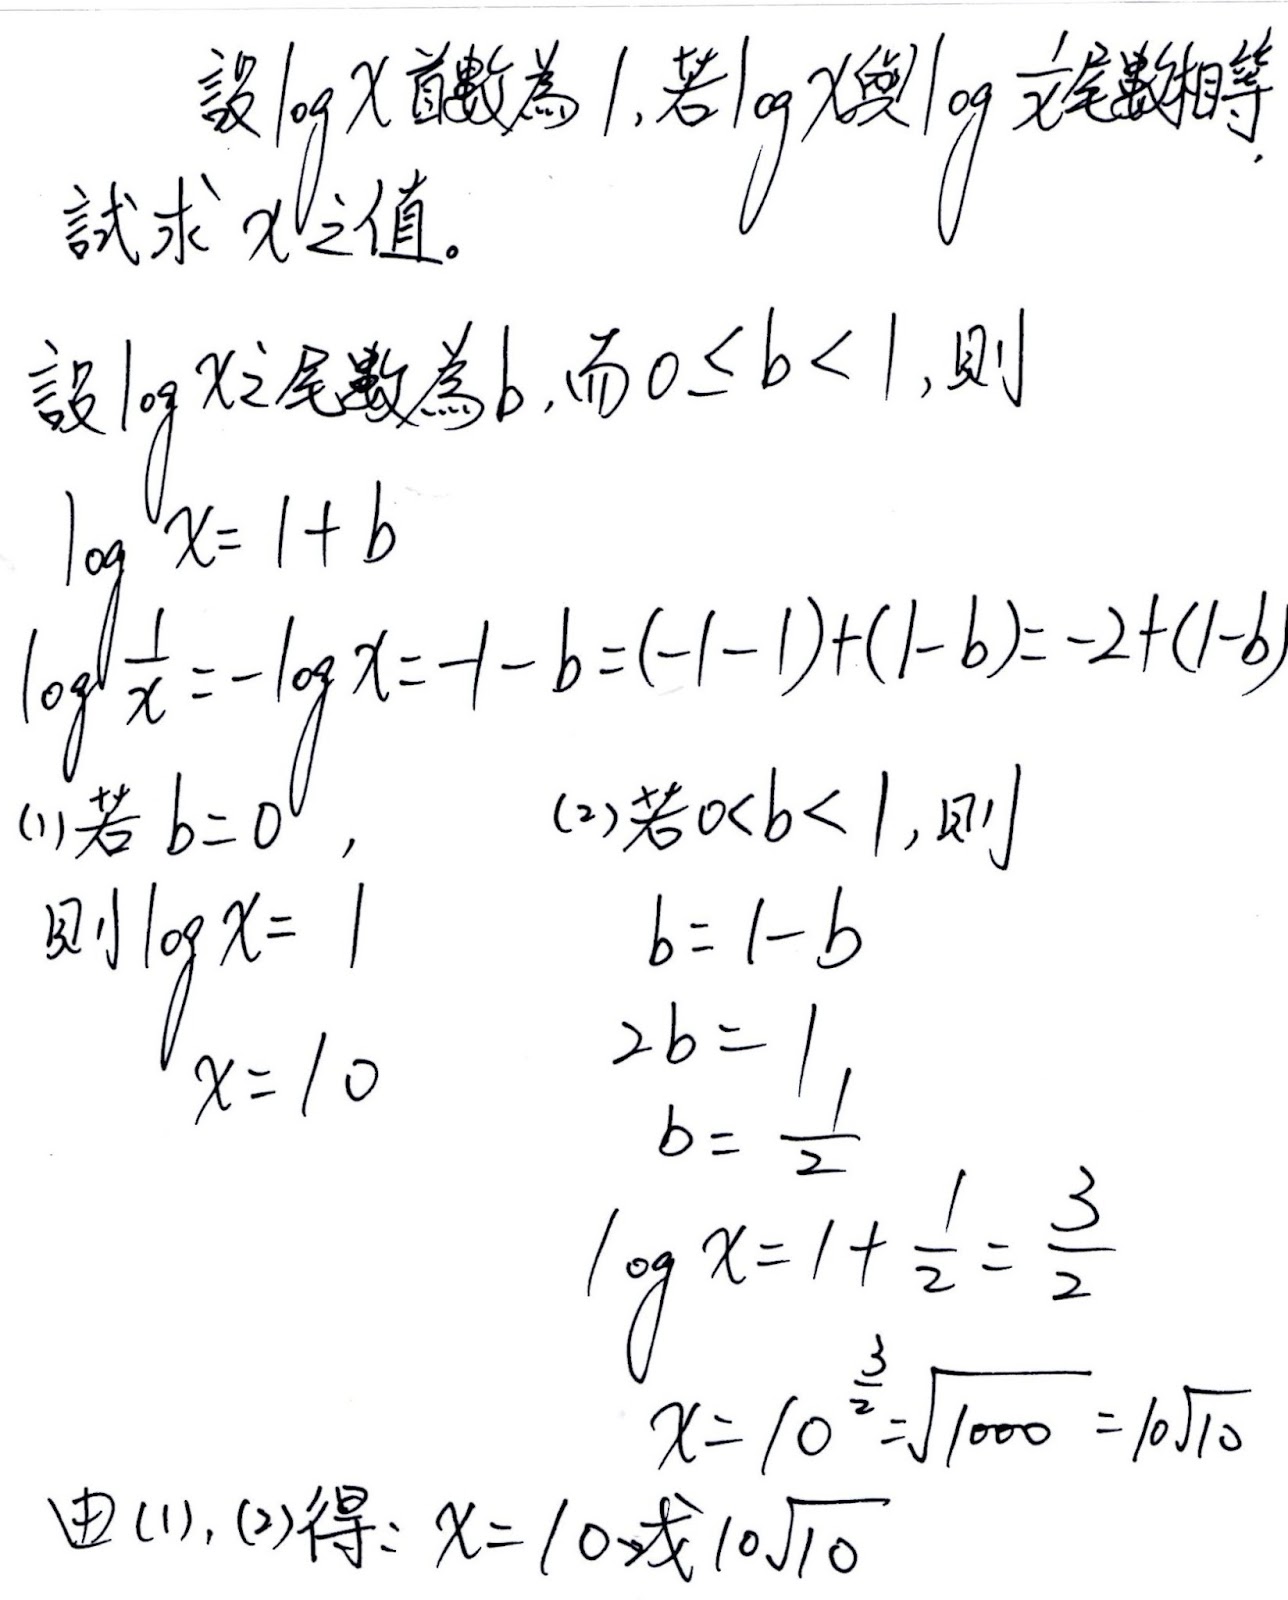 設log x首數為1,若log x與log 1/x尾數相等,
試求x之值。
設log x之尾數為b,而0≤b<1,則
log x=1+b
log 1/x=-log x=-1-b=(-1-1)+(1-b)=-2+(1-b)
(1)若b=0,
則log x=1
x=10
(2)若0<b<1,則
b=1-b
2b=1
b=1/2
log x=1+1/2=3/2
x=10^(3/2)=√1000=10√10
由(1),(2)得:x=10或10√10